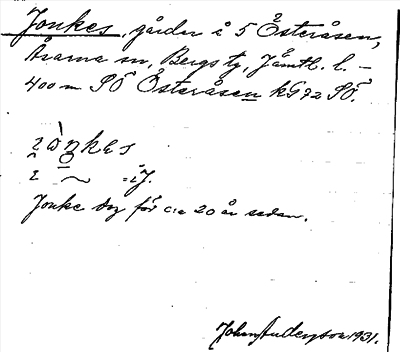 Jonkes, gårdar i 5 Österåsen,
sn, Bergs tg, Jämtl. l. –
400 m SÖ Österåsen kG 92 SÖ.
Jonke dog för c:a 20 år sedan.
Johan Anderson 1931.